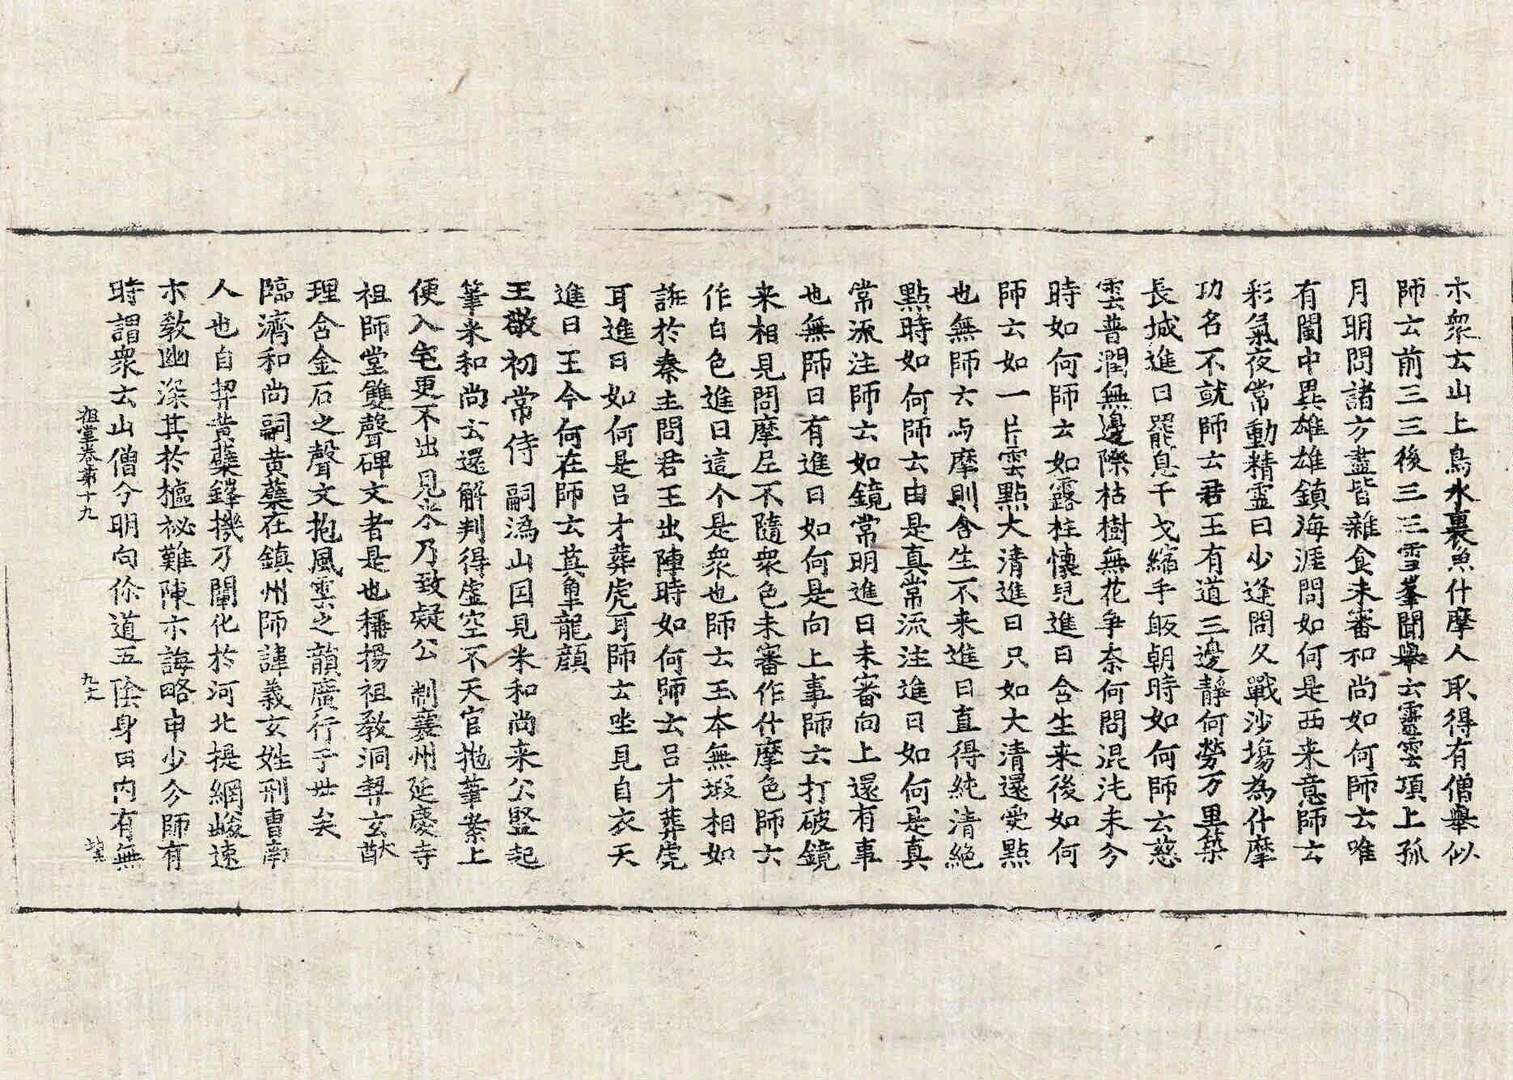 示衆云山上鳥水裏魚什摩人取得有僧舉似
師云前三三後三三雪峯聞舉云靈雲項上孤
月明問諸方盡皆雜食未審和尚如何師云唯
有閩中異雄雄鎮海涯問如何是西来意師云
彩氣夜常動精靈日少逢問久戰沙塲為什摩
功名不就師云君王有道三邊靜何勞万里築
長城進曰罷息干戈縮手皈朝時如何師云慈
雲普潤無邊際枯樹無花争奈何問混沌未分
時如何師云如露柱懷兒進曰含生来後如何
師云如一片雲點大清進曰只如大清還受點
也無師云与摩則含生不来進曰直得純清絶
點時如何師云由是真常流注進曰如何是真
常流注師云如鏡常明進曰未審向上還有事
也無師曰有進曰如何是向上事師云打破鏡
来相見問摩尼不隨衆色未審作什摩色師云
作白色進曰這个是衆也師云玉本無瑕相如
誑於秦主問君王出陣時如何師云呂才葬虎
耳進曰如何是呂才葬虎耳師云坐見白衣天
進曰王今何在師云莫觸龍顔
王敬初常侍嗣溈山因見米和尚来公竪起
筆米和尚云還解判得虛空不天官抛筆案上
便入宅更不出見米乃致疑公制襄州延慶寺
祖師堂雙聲碑文者是也稱揚祖教洞契玄猷
理含金石之聲文抱風雲之韻廣行于世矣
臨濟和尚嗣黄蘗在鎮州師諱義玄姓刑曹南
人也自契黄蘗鋒機乃闡化於河北提綱峻速
示教幽深其於樞祕難陳示誨略申少分師有
時謂衆云山僧分明向你道五陰身田内有無
祖堂卷第十九
九丈